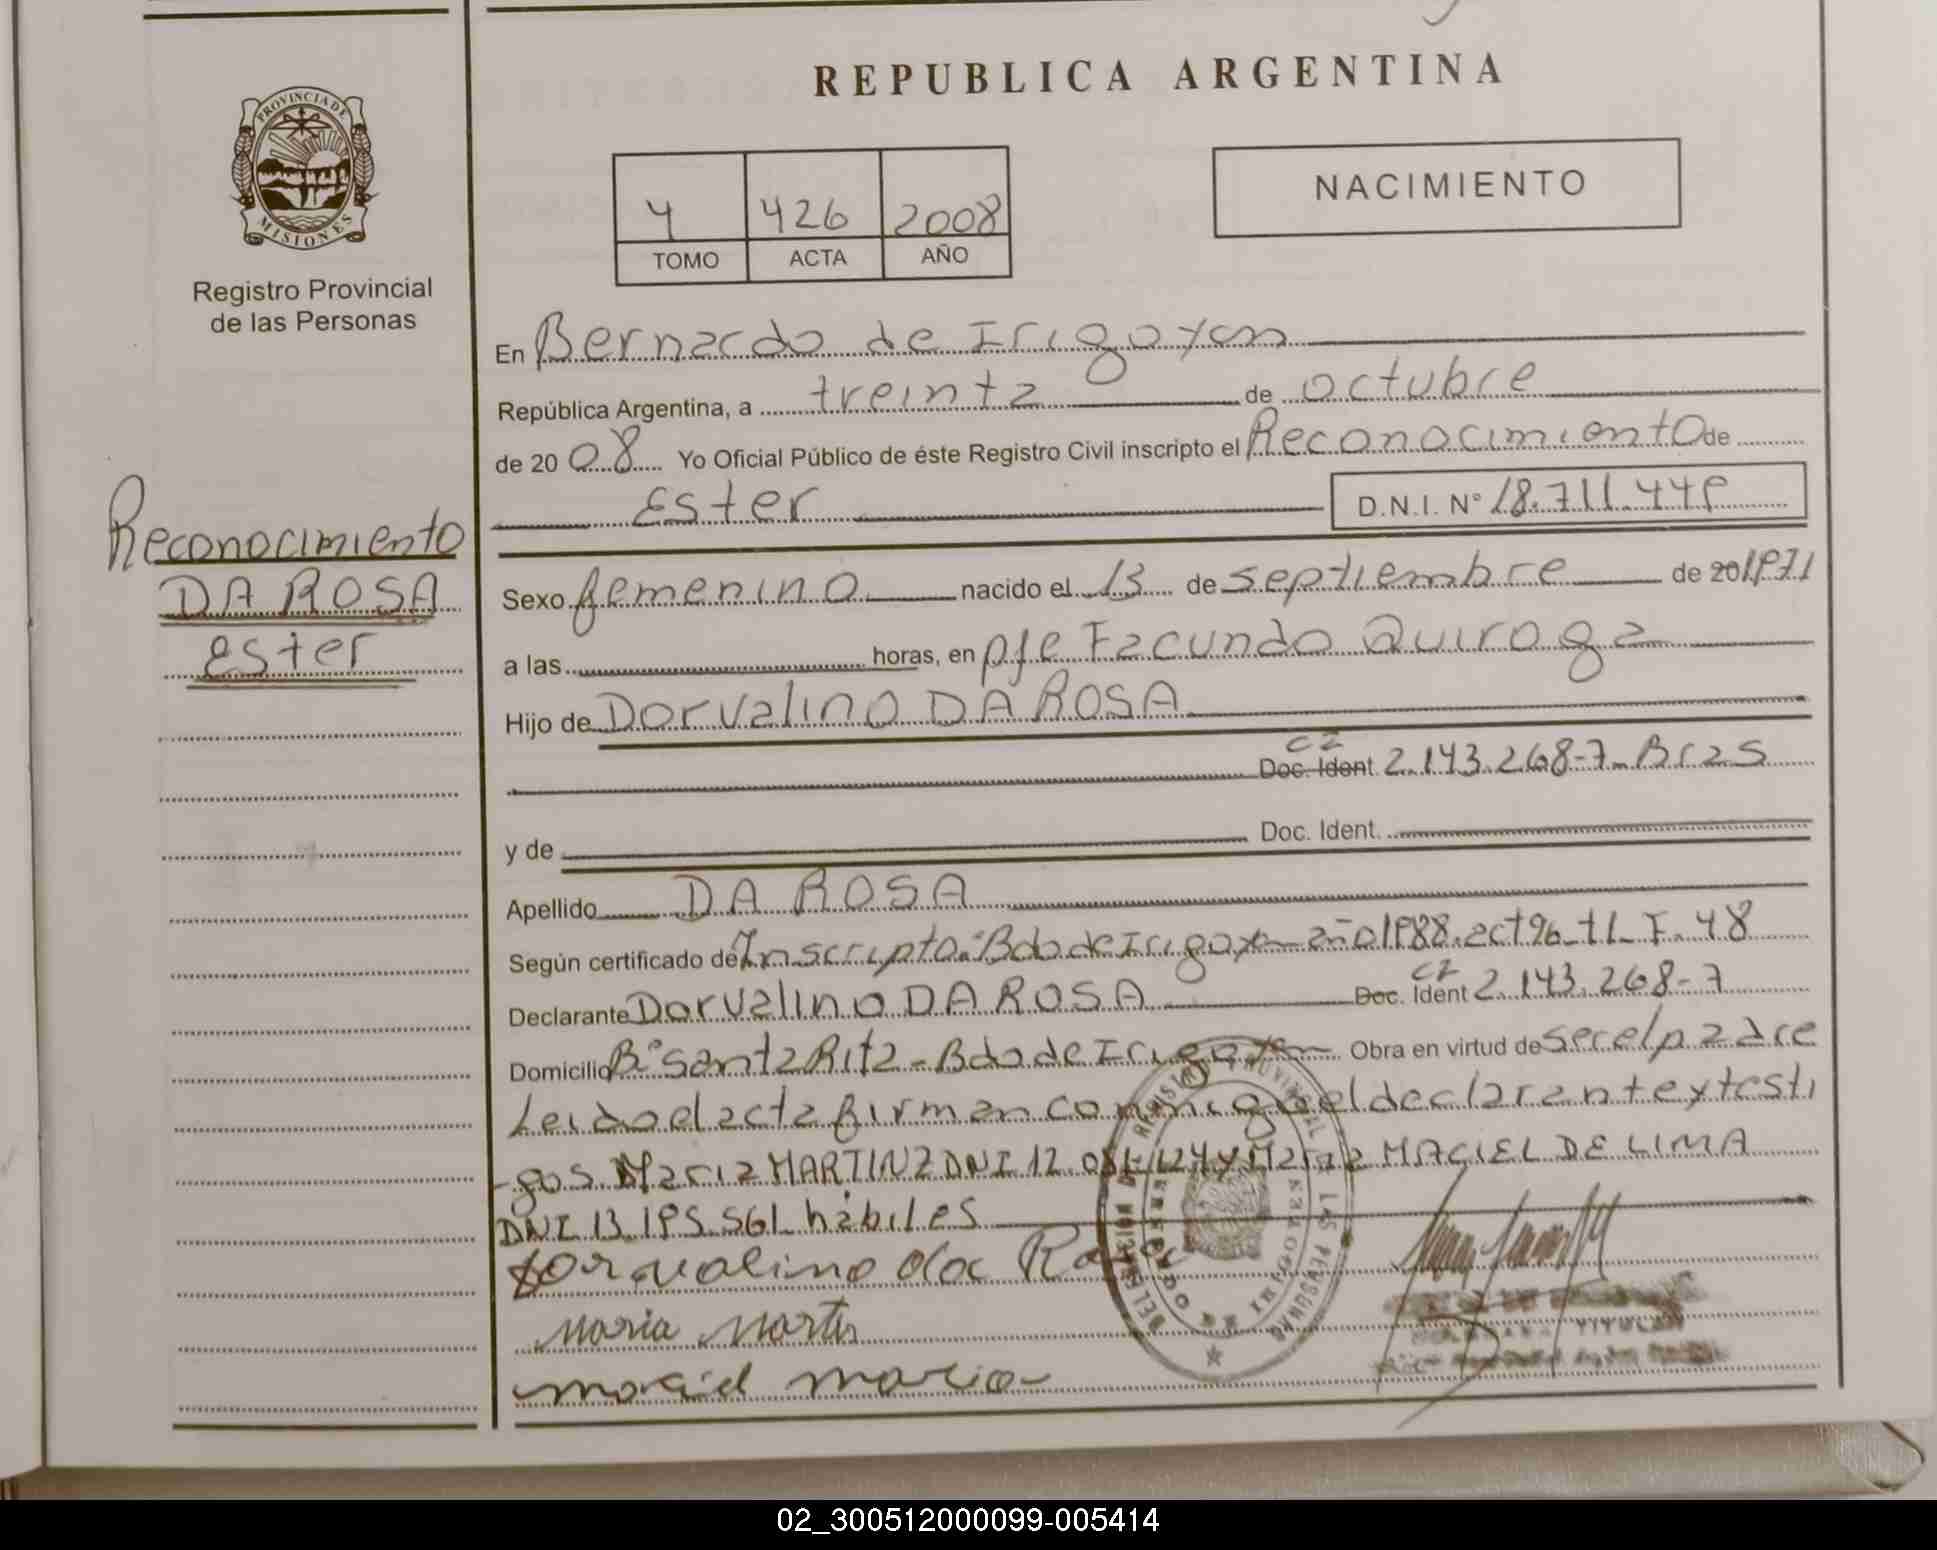 REPUBLICA ARGENTINA
PROVINCIA DE MISIONES
Registro Provincial
de las Personas
4 426 2008
TOMO ACTA AÑO
NACIMIENTO
En Bernardo de Irigoyen
República Argentina, a treinta de octubre
de 20 08 Yo Oficial Público de éste Registro Civil inscripto el Reconocimiento de
Ester D.N.I. N° 18.711.449
Reconocimiento
DA ROSA
Ester
Sexo femenino nacido el 13 de septiembre de 20 1971
a las horas, en pje Facundo Quiroga
Hijo de Dorvalino DA ROSA
CI Doc. Ident 2.143.268-7 Bras
y de Doc. Ident.
Apellido DA ROSA
Según certificado de Inscripto: Bdo de Irigoyen año 1988. act 96 t1 F. 48
Declarante Dorvalino DA ROSA CI Doc. Ident 2.143.268-7
Domicilio B° Santa Rita - Bdo de Irigoyen Obra en virtud de ser el padre
Leido el acta firman conmigo el declarante y testi
-gos Maria MARTINZ DNI 12. y Maria MACIEL DE LIMA
DNI 13.195.561 habiles
dorvalino da Rosa
Maria Martin
maciel maria
REGISTRO PROVINCIAL DE LAS PERSONAS
TITULAR
02_300512000099-005414